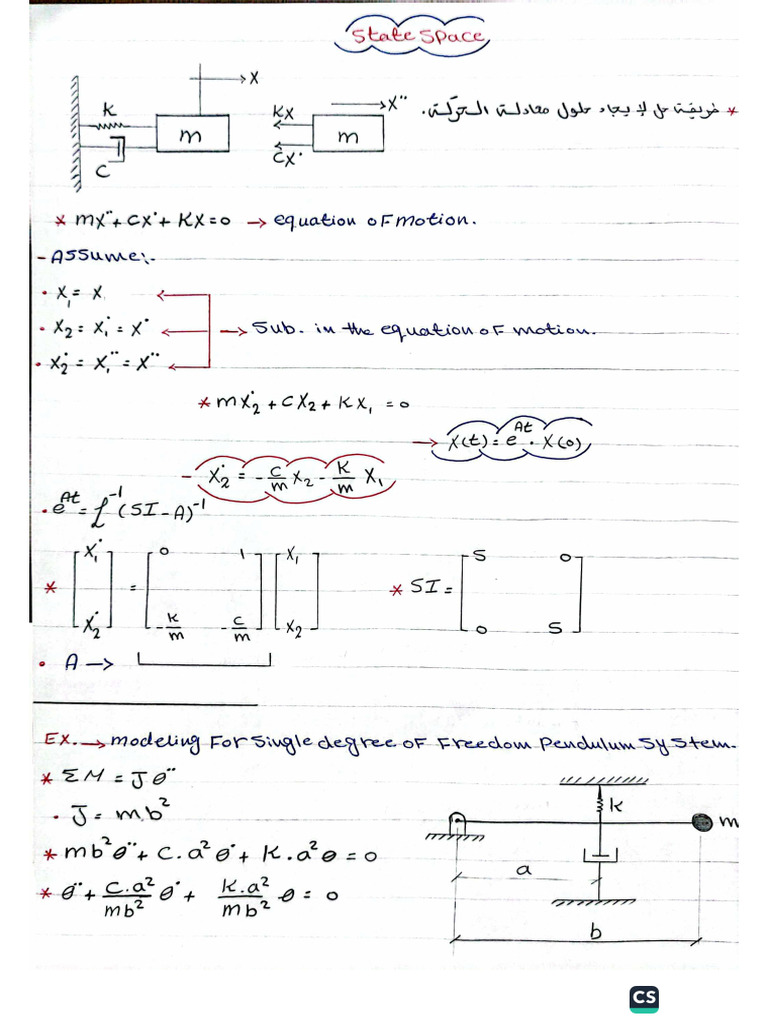 State Space
x
K
m
C
Kx
Cx˙
m
x¨
* طريقة حل لإيجاد حلول معادلة الحركة.
* mx¨ + cx˙ + Kx = 0 → equation of motion.
- Assume:-
• x₁ = x
• x₂ = x₁˙ = x˙ → Sub. in the equation of motion.
• x₂˙ = x₁¨ = x¨
* mx₂˙ + cx₂ + Kx₁ = 0
→ x(t) = e^At . x(0)
- x₂˙ = -c/m x₂ - K/m x₁
• e^At = ℒ⁻¹ (SI - A)⁻¹
* [x₁˙ ; x₂˙] = [0 1 ; -K/m -c/m] [x₁ ; x₂]
* SI = [S 0 ; 0 S]
• A →
EX. → modeling For Single degree of Freedom Pendulum System.
* ΣM = Jθ¨
• J = m.b²
* mb²θ¨ + c.a²θ˙ + K.a²θ = 0
* θ¨ + c.a²/mb² θ˙ + K.a²/mb² θ = 0
k
m
a
b
CS